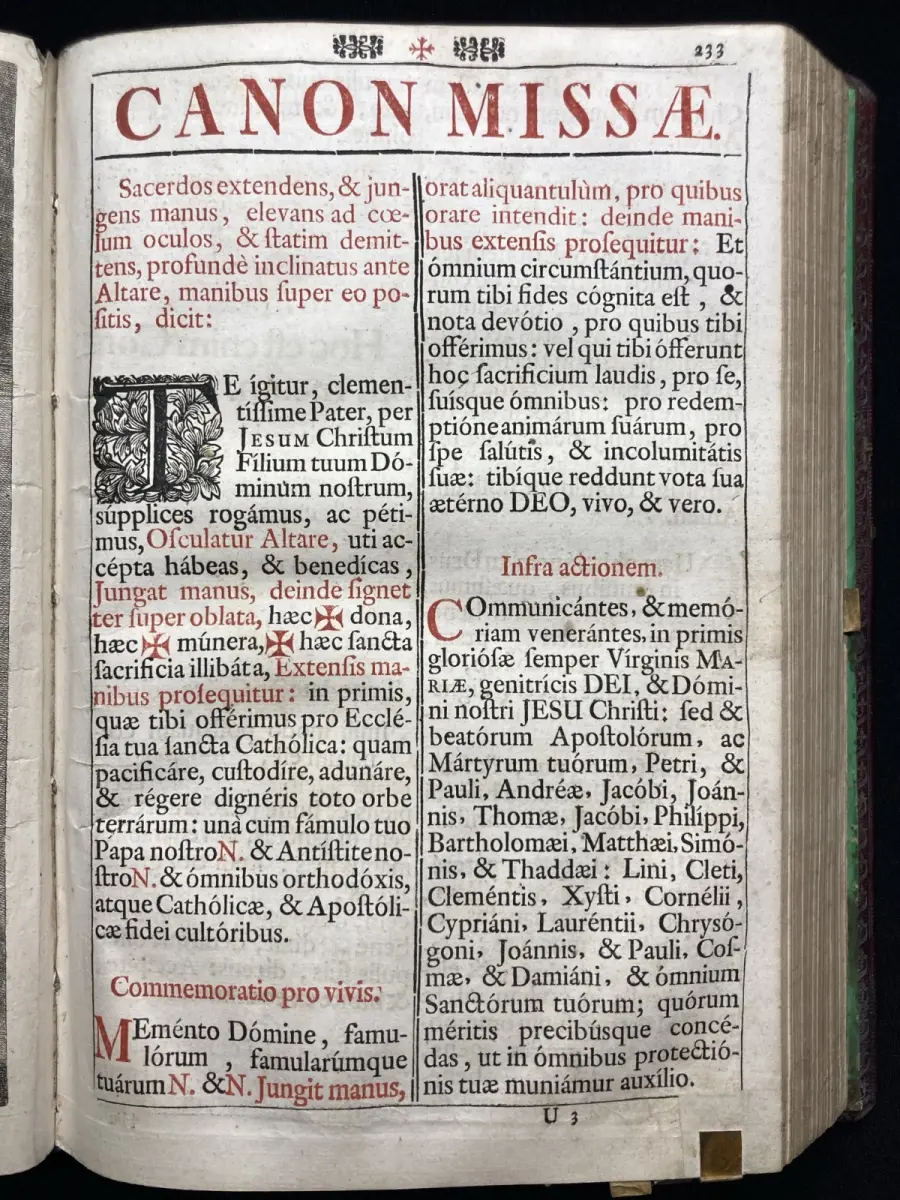 ✠ 233
CANON MISSÆ.
Sacerdos extendens, & jun-
gens manus, elevans ad cœ-
lum oculos, & ſtatim demit-
tens, profundè inclinatus ante
Altare, manibus ſuper eo po-
ſitis, dicit:
TE ígitur, clemen-
tíſſime Pater, per
JESUM Chriſtum
Fílium tuum Dó-
minum noſtrum,
súpplices rogámus, ac péti-
mus, Oſculatur Altare, uti ac-
cépta hábeas, & benedícas,
Jungat manus, deinde ſignet
ter ſuper oblata, hæc ✠ dona,
hæc ✠ múnera, ✠ hæc ſancta
ſacrificia illibáta, Extenſis ma-
nibus proſequitur: in primis,
quæ tibi offérimus pro Ecclé-
ſia tua ſancta Cathólica: quam
pacificáre, cuſtodíre, adunáre,
& régere dignéris toto orbe
terrárum: unà cum fámulo tuo
Papa noſtro N. & Antíſtite no-
ſtro N. & ómnibus orthodóxis,
atque Cathólicæ, & Apoſtóli-
cæ fidei cultóribus.
Commemoratio pro vivis.
MEménto Dómine, famu-
lórum, famularúmque
tuárum N. & N. Jungit manus,
orat aliquantulùm, pro quibus
orare intendit: deinde mani-
bus extenſis proſequitur: Et
ómnium circumſtántium, quo-
rum tibi fides cógnita eſt, &
nota devótio, pro quibus tibi
offérimus: vel qui tibi ófferunt
hoc ſacrificium laudis, pro ſe,
ſuíſque ómnibus: pro redem-
ptióne animárum ſuárum, pro
ſpe ſalútis, & incolumitátis
ſuæ: tibíque reddunt vota ſua
ætérno DEO, vivo, & vero.
Infra actionem.
COmmunicántes, & memó-
riam venerántes, in primis
glorióſæ ſemper Vírginis MA-
RIÆ, genitrícis DEI, & Dómi-
ni noſtri JESU Chriſti: ſed &
beatórum Apoſtolórum, ac
Mártyrum tuórum, Petri, &
Pauli, Andréæ, Jacóbi, Joán-
nis, Thomæ, Jacóbi, Philíppi,
Bartholomæi, Matthæi, Simó-
nis, & Thaddæi: Lini, Cleti,
Cleméntis, Xyſti, Cornélii,
Cypriáni, Lauréntii, Chryſó-
goni, Joánnis, & Pauli, Coſ-
mæ, & Damiáni, & ómnium
Sanctórum tuórum; quórum
méritis precibúsque concé-
das, ut in ómnibus protectió-
nis tuæ muniámur auxílio.
U 3